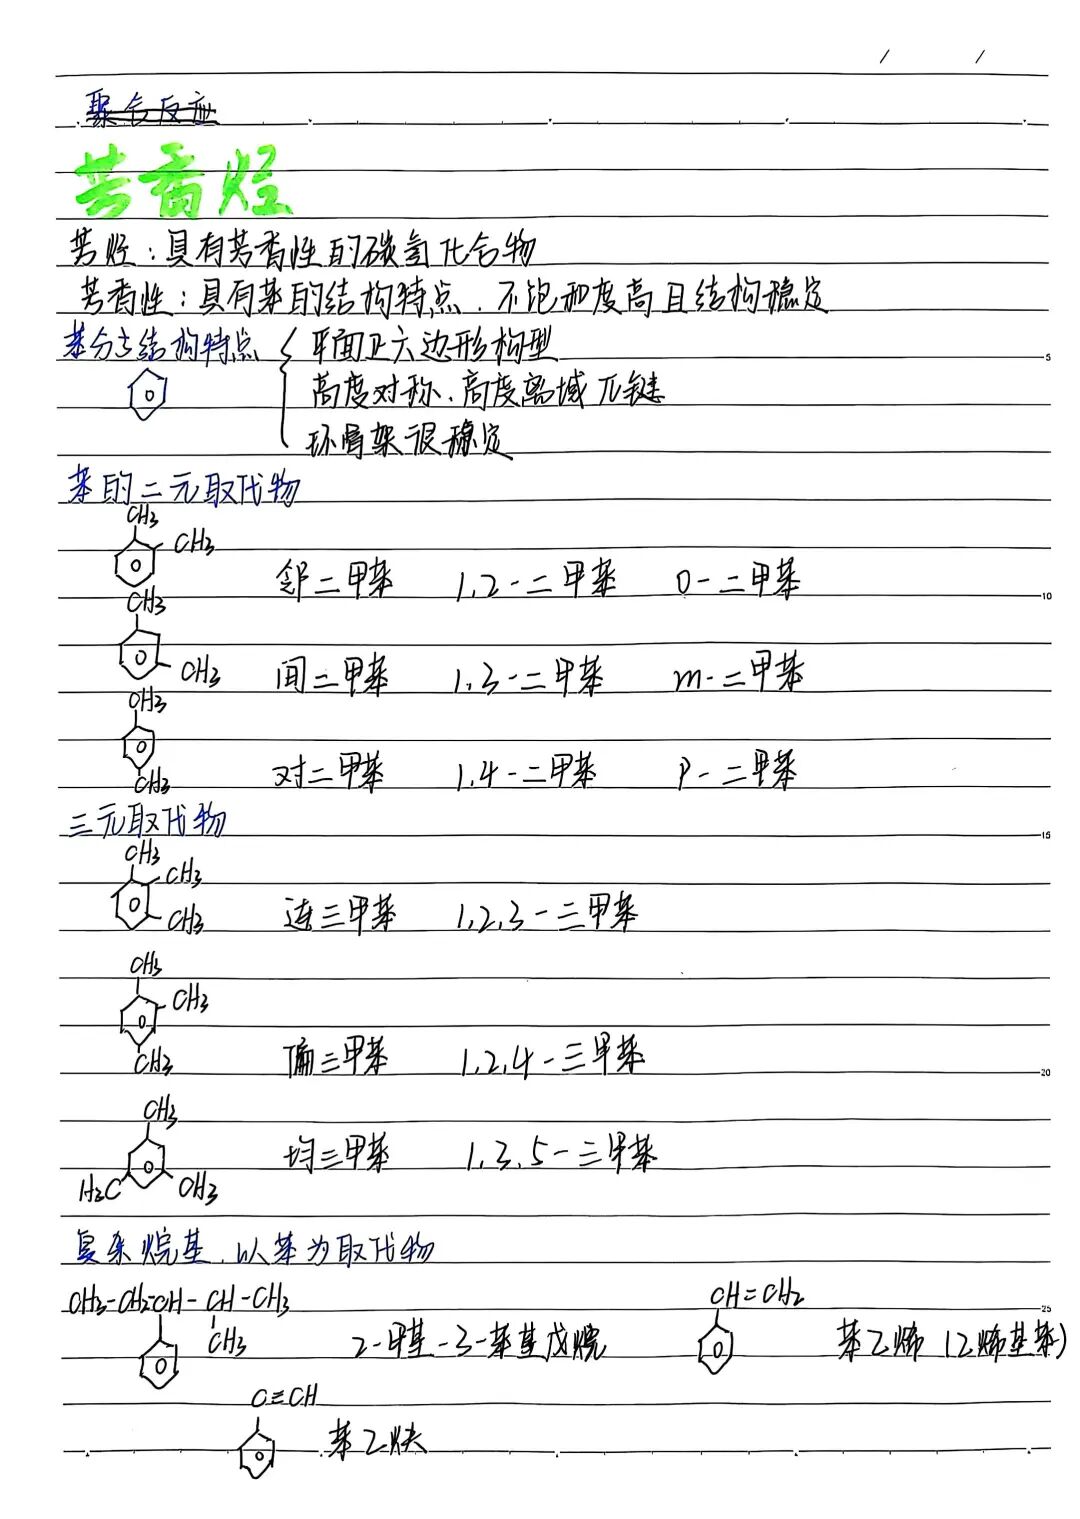 聚合反应
芳香烃
芳烃：具有芳香性的碳氢化合物
芳香性：具有苯的结构特点、不饱和度高且结构稳定
苯分子结构特点 平面正六边形构型
高度对称、高度离域π键
环骨架很稳定
苯的二元取代物
CH3
CH3
邻二甲苯 1,2-二甲苯 O-二甲苯
CH3
CH3 间二甲苯 1,3-二甲苯 m-二甲苯
CH3
对二甲苯 1,4-二甲苯 P-二甲苯
CH3
三元取代物
CH3
CH3
CH3 连三甲苯 1,2,3-三甲苯
CH3
CH3
CH3 偏三甲苯 1,2,4-三甲苯
CH3
均三甲苯 1,3,5-三甲苯
H3C CH3
复杂烷基、以苯为取代物
CH3-CH2-CH-CH-CH3 CH=CH2
CH3 2-甲基-3-苯基戊烷 苯乙烯（乙烯基苯）
C≡CH
苯乙炔
5
10
15
20
25